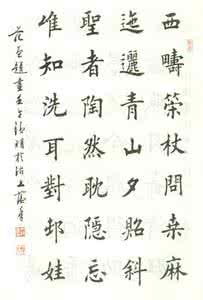 西疇策杖問桑麻
迤邐青山夕斜
聖者陶然耽隱忘
唯知洗耳對邨娃
畫壬午於上